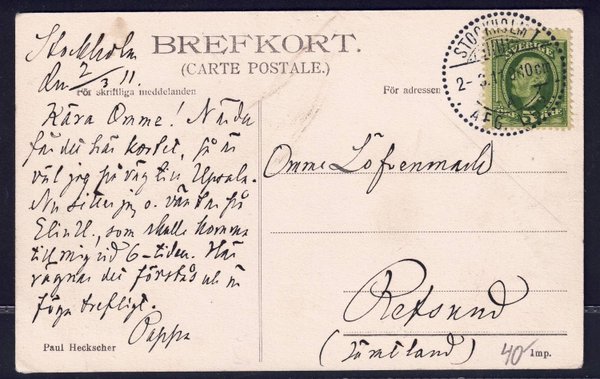 Stockholm
den 2/3 11.
BREFKORT.
(CARTE POSTALE.)
För skriftliga meddelanden
För adressen
STOCKHOLM 1
2-3.11
AFG.
SVERIGE
5
Kära Omme! När du
får det här kortet, så är
väl jag på väg till Upsala.
Nu sitter jag o. väntar på
Elin U., som skulle komma
till mig vid 6-tiden. Här
regnar det förstås och är
föga trefligt.
Pappa
Omme Löfvenmark
Refsund
(Jämtland)
Paul Heckscher
40 Imp.